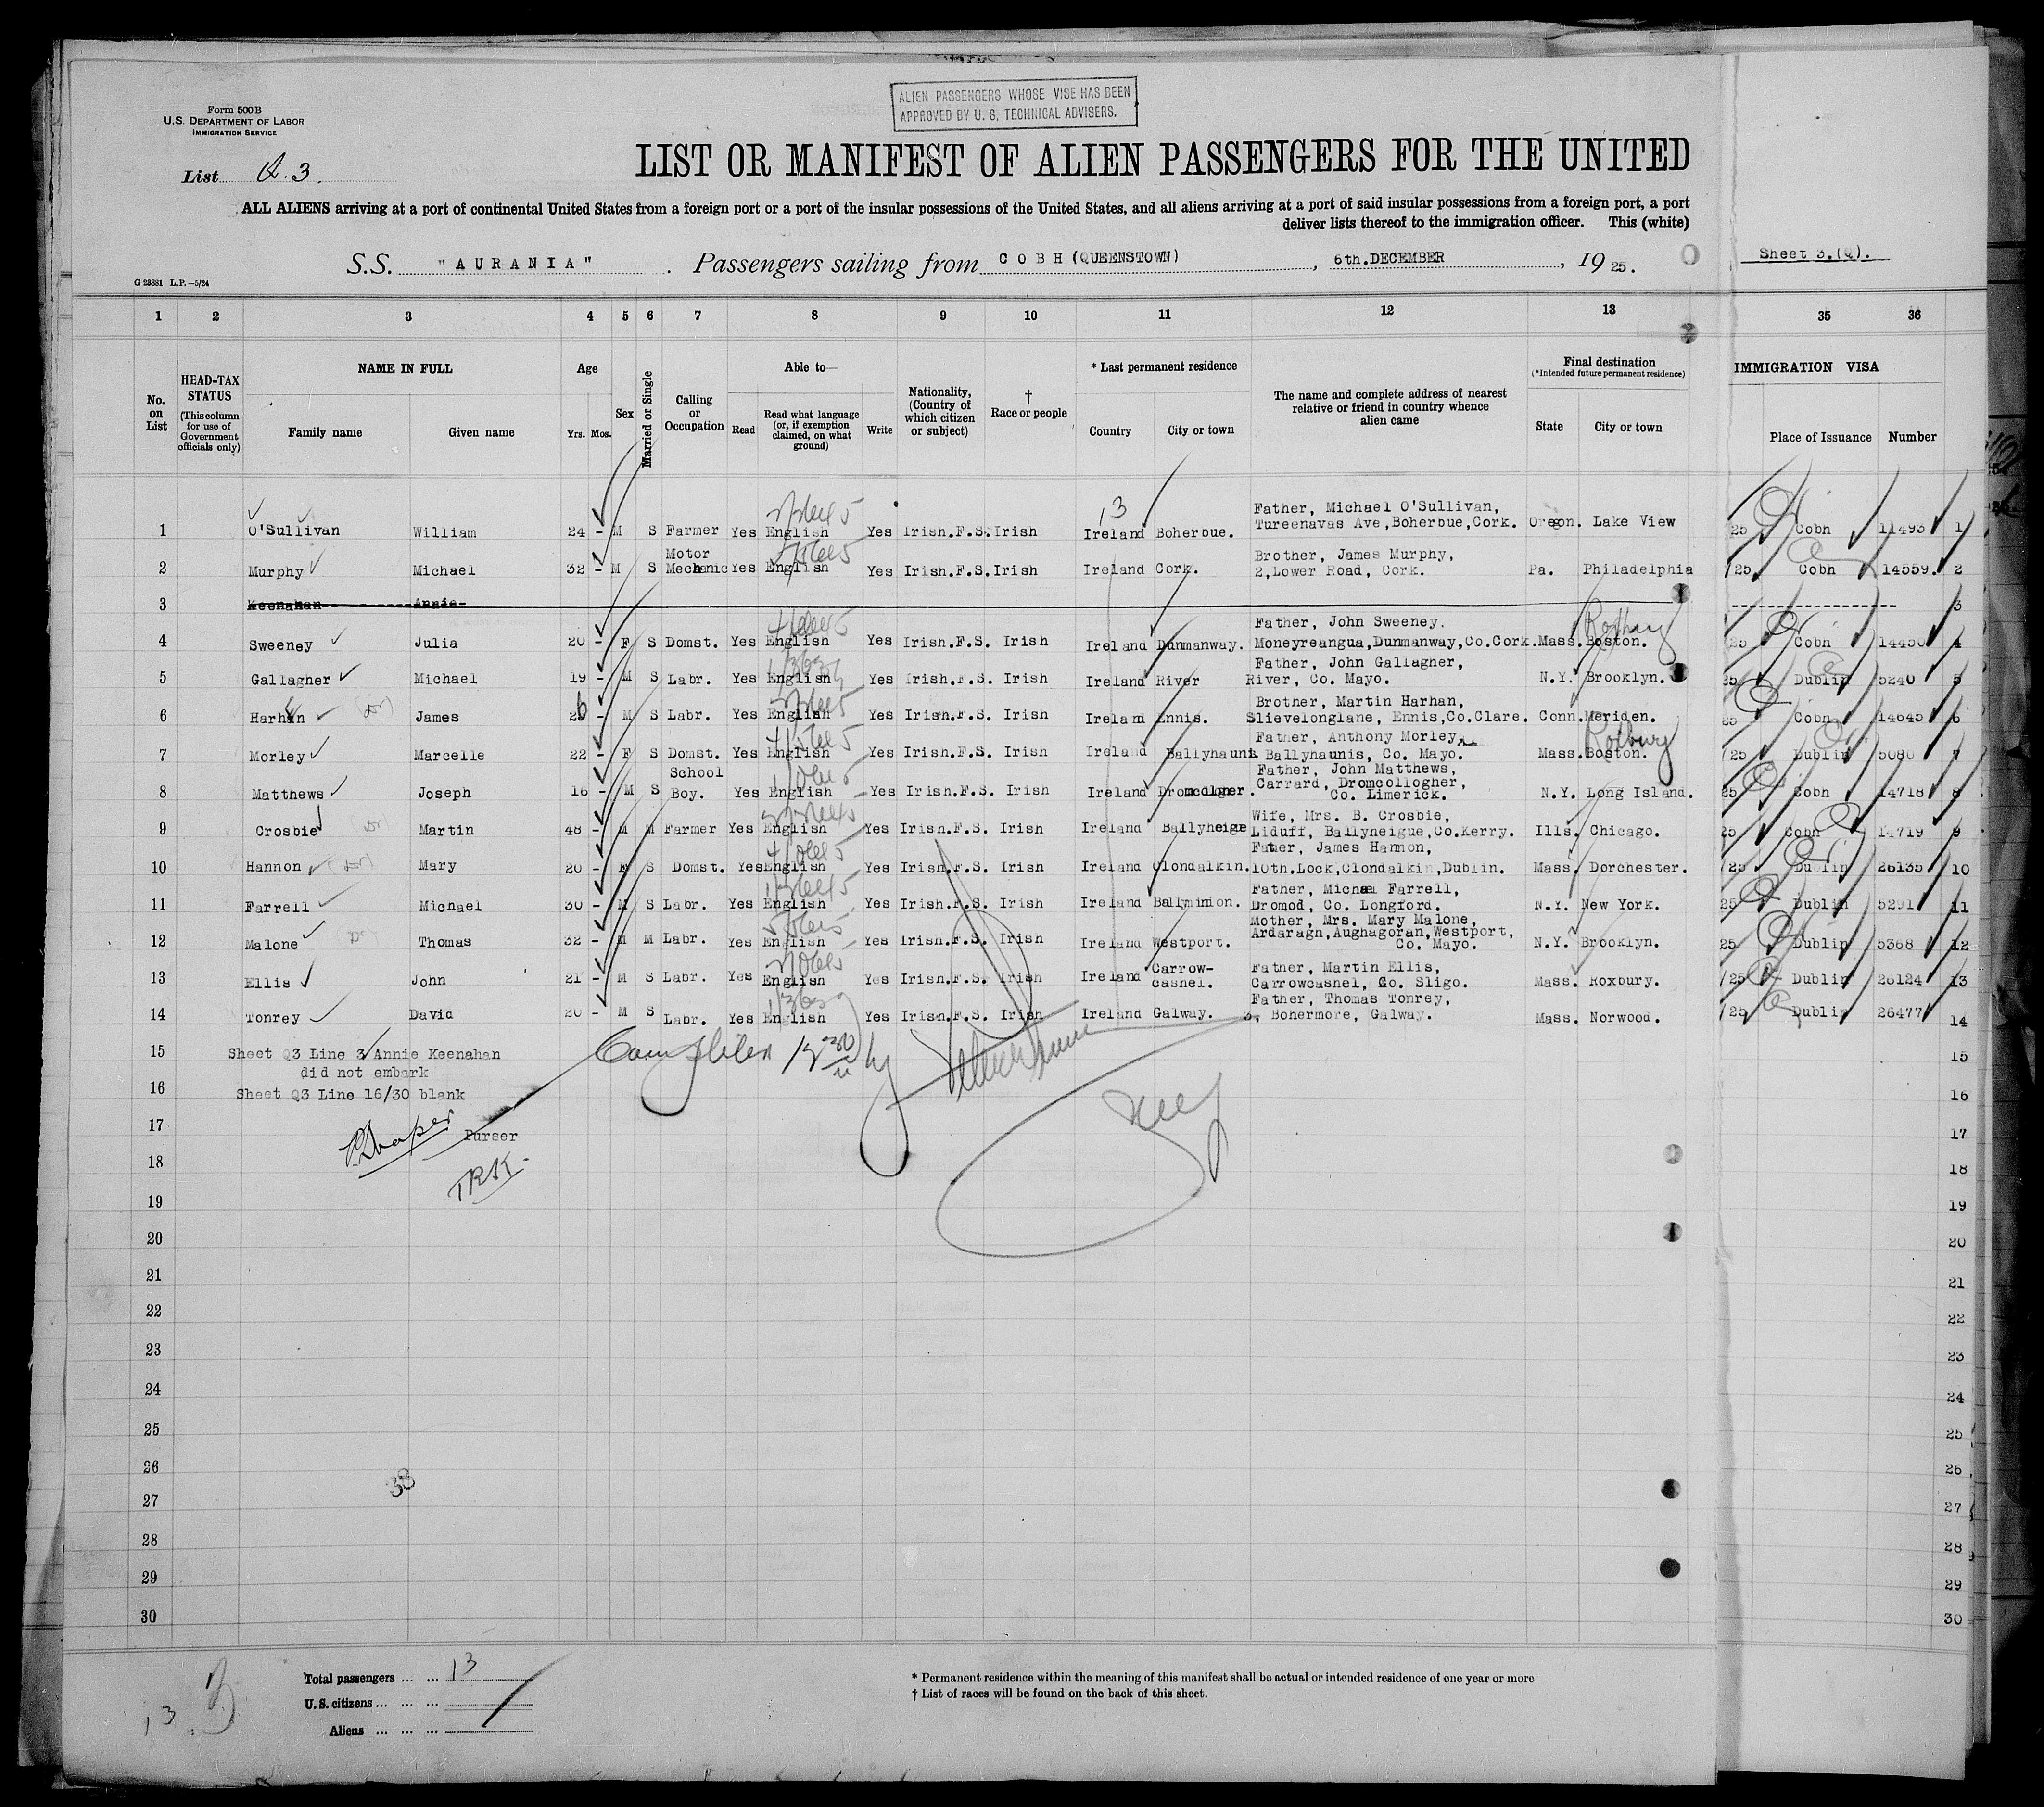 ALIEN PASSENGERS WHOSE VISE HAS BEEN
APPROVED BY U. S. TECHNICAL ADVISERS.
Form 500B
U.S. DEPARTMENT OF LABOR
IMMIGRATION SERVICE
List Q. 3.
LIST OR MANIFEST OF ALIEN PASSENGERS FOR THE UNITED
ALL ALIENS arriving at a port of continental United States from a foreign port or a port of the insular possessions of the United States, and all aliens arriving at a port of said insular possessions from a foreign port, a port
deliver lists thereof to the immigration officer. This (white)
S.S. "AURANIA" . Passengers sailing from COBH (QUEENSTOWN) , 6th.DECEMBER , 1925.
Sheet 3.(Q).
G 23881 L.P.—5/24
1 2 3 4 5 6 7 8 9 10 11 12 13 35 36
No. on List
HEAD-TAX STATUS (This column for use of Government officials only)
NAME IN FULL
Family name Given name
Age
Yrs. Mos.
Sex
Married or Single
Calling or Occupation
Able to—
Read Read what language (or, if exemption claimed, on what ground) Write
Nationality, (Country of which citizen or subject)
† Race or people
* Last permanent residence
Country City or town
The name and complete address of nearest relative or friend in country whence alien came
Final destination
(*Intended future permanent residence)
State City or town
IMMIGRATION VISA
Place of Issuance Number
13
1 O'Sullivan William 24 - M S Farmer Yes English Yes Irish.F.S. Irish Ireland Boherbue. Father, Michael O'Sullivan, Tureenavas Ave,Boherbue,Cork. Oregon. Lake View 25 Cobh 11493 1
2 Murphy Michael 32 - M S Motor Mechanic Yes English Yes Irish.F.S. Irish Ireland Cork. Brother, James Murphy, 2,Lower Road, Cork. Pa. Philadelphia 25 Cobh 14559. 2
3 Keenahan Annie 3
4 Sweeney Julia 20 - F S Domst. Yes English Yes Irish.F.S. Irish Ireland Dunmanway. Father, John Sweeney. Moneyreangua,Dunmanway,Co.Cork. Mass. Boston. Roxbury 25 Cobh 14450 4
5 Gallagher Michael 19 - M S Labr. Yes English Yes Irish.F.S. Irish Ireland River Father, John Gallagher, River, Co. Mayo. N.Y. Brooklyn. 25 Dublin 5240 5
6 Harhan James 26 - M S Labr. Yes English Yes Irish.F.S. Irish Ireland Ennis. Brother, Martin Harhan, Slievelonglane, Ennis,Co.Clare. Conn. Meriden. 25 Cobh 14645 6
7 Morley Marcelle 22 - F S Domst. Yes English Yes Irish.F.S. Irish Ireland Ballynaunis Father, Anthony Morley, Ballynaunis, Co. Mayo. Mass. Boston. Roxbury 25 Dublin 5080 7
8 Matthews Joseph 16 - M S School Boy. Yes English Yes Irish.F.S. Irish Ireland Father, John Matthews, Carrard, Dromcollogher, Co. Limerick. N.Y. Long Island. 25 Cobh 14718 8
9 Crosbie Martin 48 - M M Farmer Yes English Yes Irish.F.S. Irish Ireland Ballyheige Wife, Mrs. B. Crosbie, Liduff, Ballyneigue,Co.Kerry. Ills. Chicago. 25 Cobh 14719 9
10 Hannon Mary 20 - F S Domst. Yes English Yes Irish.F.S. Irish Ireland Clondalkin. Father, James Hannon, 10th.Lock,Clondalkin,Dublin. Mass. Dorchester. 25 Dublin 26135 10
11 Farrell Michael 30 - M S Labr. Yes English Yes Irish.F.S. Irish Ireland Ballyminion. Father, Michael Farrell, Dromod, Co. Longford. N.Y. New York. 25 Dublin 5291 11
12 Malone Thomas 32 - M M Labr. Yes English Yes Irish.F.S. Irish Ireland Westport. Mother, Mrs. Mary Malone, Ardaragn,Aughagoran,Westport, Co. Mayo. N.Y. Brooklyn. 25 Dublin 5368 12
13 Ellis John 21 - M S Labr. Yes English Yes Irish.F.S. Irish Ireland Carrow-casnel. Father, Martin Ellis, Carrowcasnel, Co. Sligo. Mass. Roxbury. 25 Dublin 26124 13
14 Tonrey David 20 - M S Labr. Yes English Yes Irish.F.S. Irish Ireland Galway. Father, Thomas Tonrey, 3, Bohermore, Galway. Mass. Norwood. 25 Dublin 26477 14
15 Sheet Q3 Line 3 Annie Keenahan 15
did not embark
16 Sheet Q3 Line 16/30 blank 16
17 Purser 17
18 18
19 19
20 20
21 21
22 22
23 23
24 24
25 25
26 26
38
27 27
28 28
29 29
30 30
Total passengers ... ... 13
U.S. citizens ... ... ...
Aliens ... ... ...
13
* Permanent residence within the meaning of this manifest shall be actual or intended residence of one year or more
† List of races will be found on the back of this sheet.